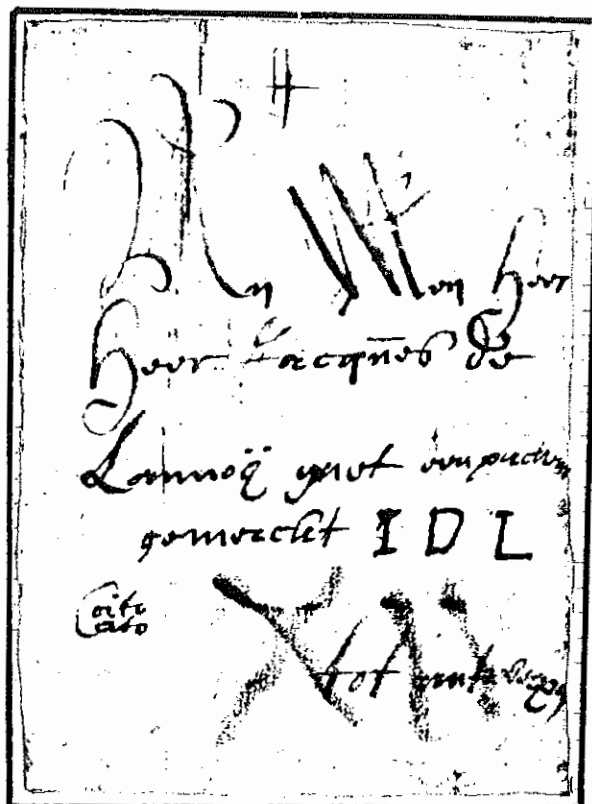 An Mon heer
heer Jacques de
Lannoÿ met een pacxken
gemerckt I D L
Cito
cito
tot antwerpen